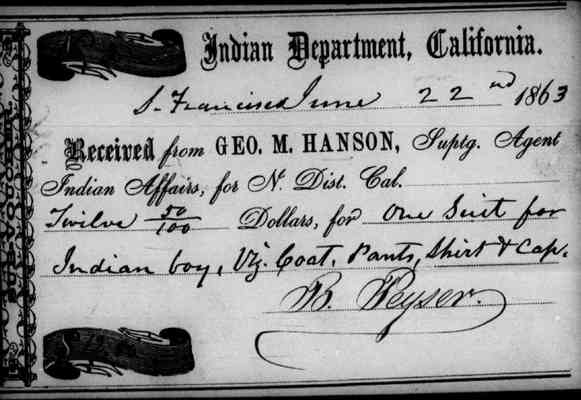 Indian Department, California.
S. Francisco June 22nd 1863
Received from GEO. M. HANSON, Suptg. Agent
Indian Affairs, for N. Dist. Cal.
Twelve 50/100 Dollars, for One Suit for
Indian boy, Viz. Coat, Pants, Shirt & Cap.
B. Peyser.
SUB-VOUCHER.